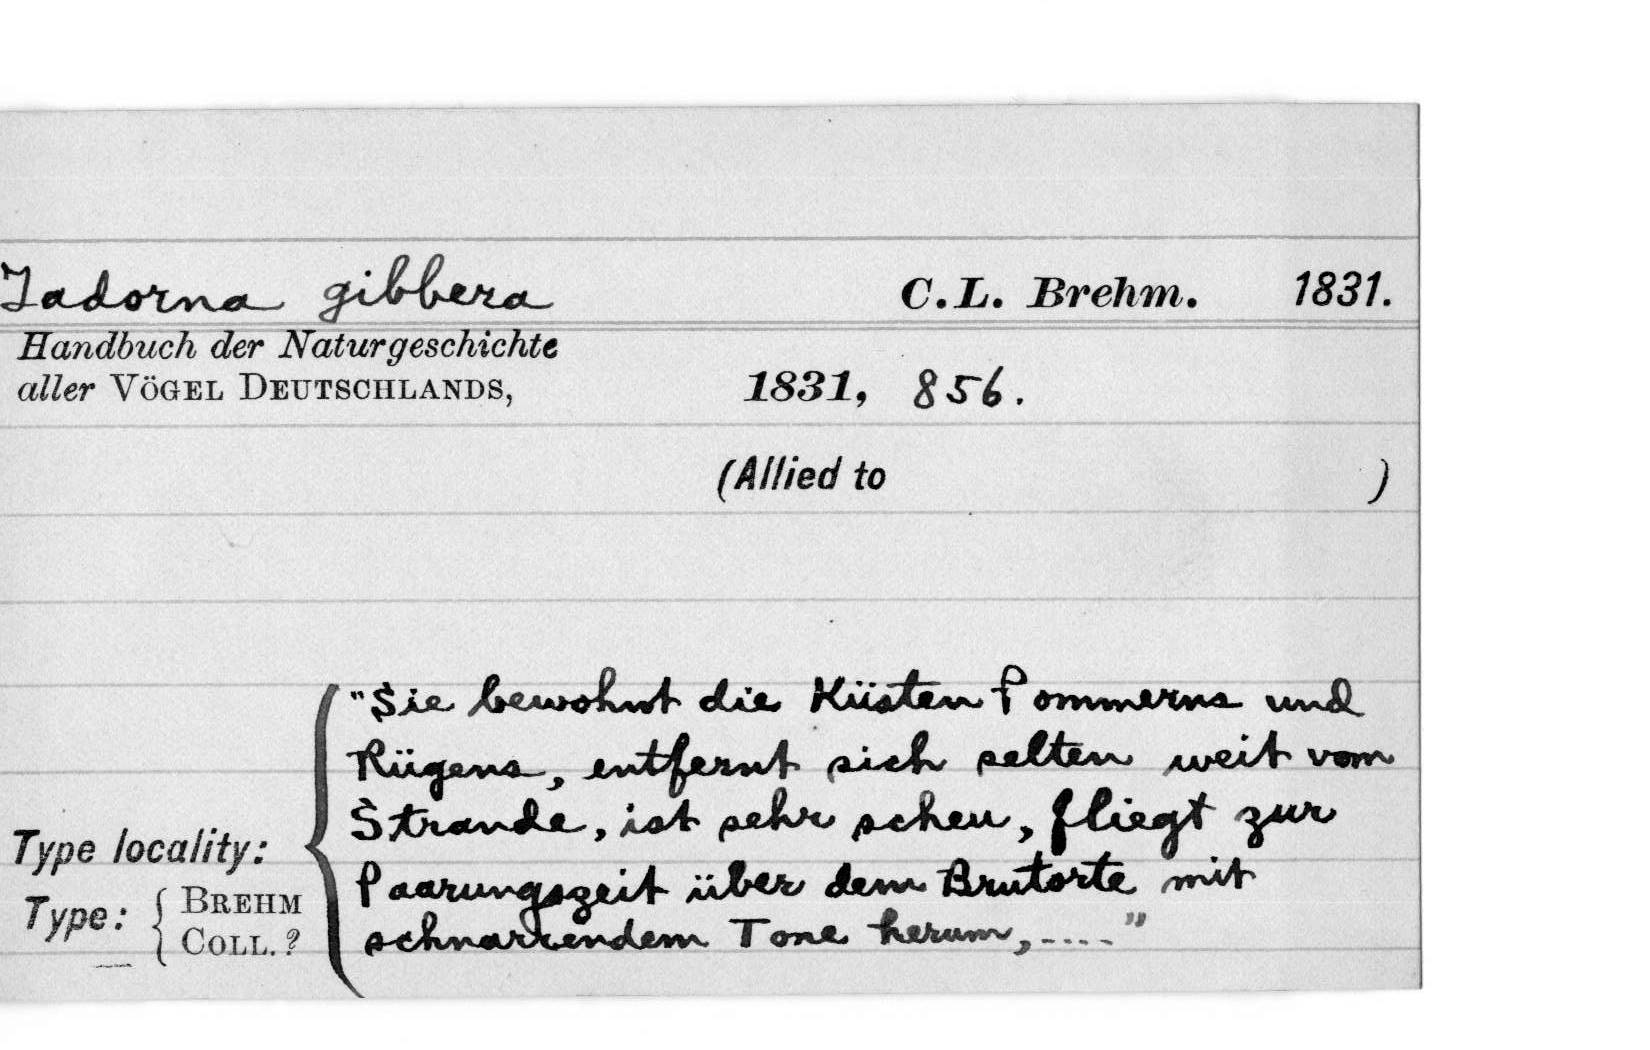 Tadorna gibbera C. L. Brehm. 1831.
Handbuch der Naturgeschichte
aller VÖGEL DEUTSCHLANDS, 1831, 856.
(Allied to )
"Sie bewohnt die Küsten Pommerns und
Rügens, entfernt sich selten weit vom
Strande, ist sehr scheu, fliegt zur
Type locality:
Paarungszeit über dem Brutorte mit
Type: { BREHM
COLL. ?
schnarrendem Tone herum, ....."